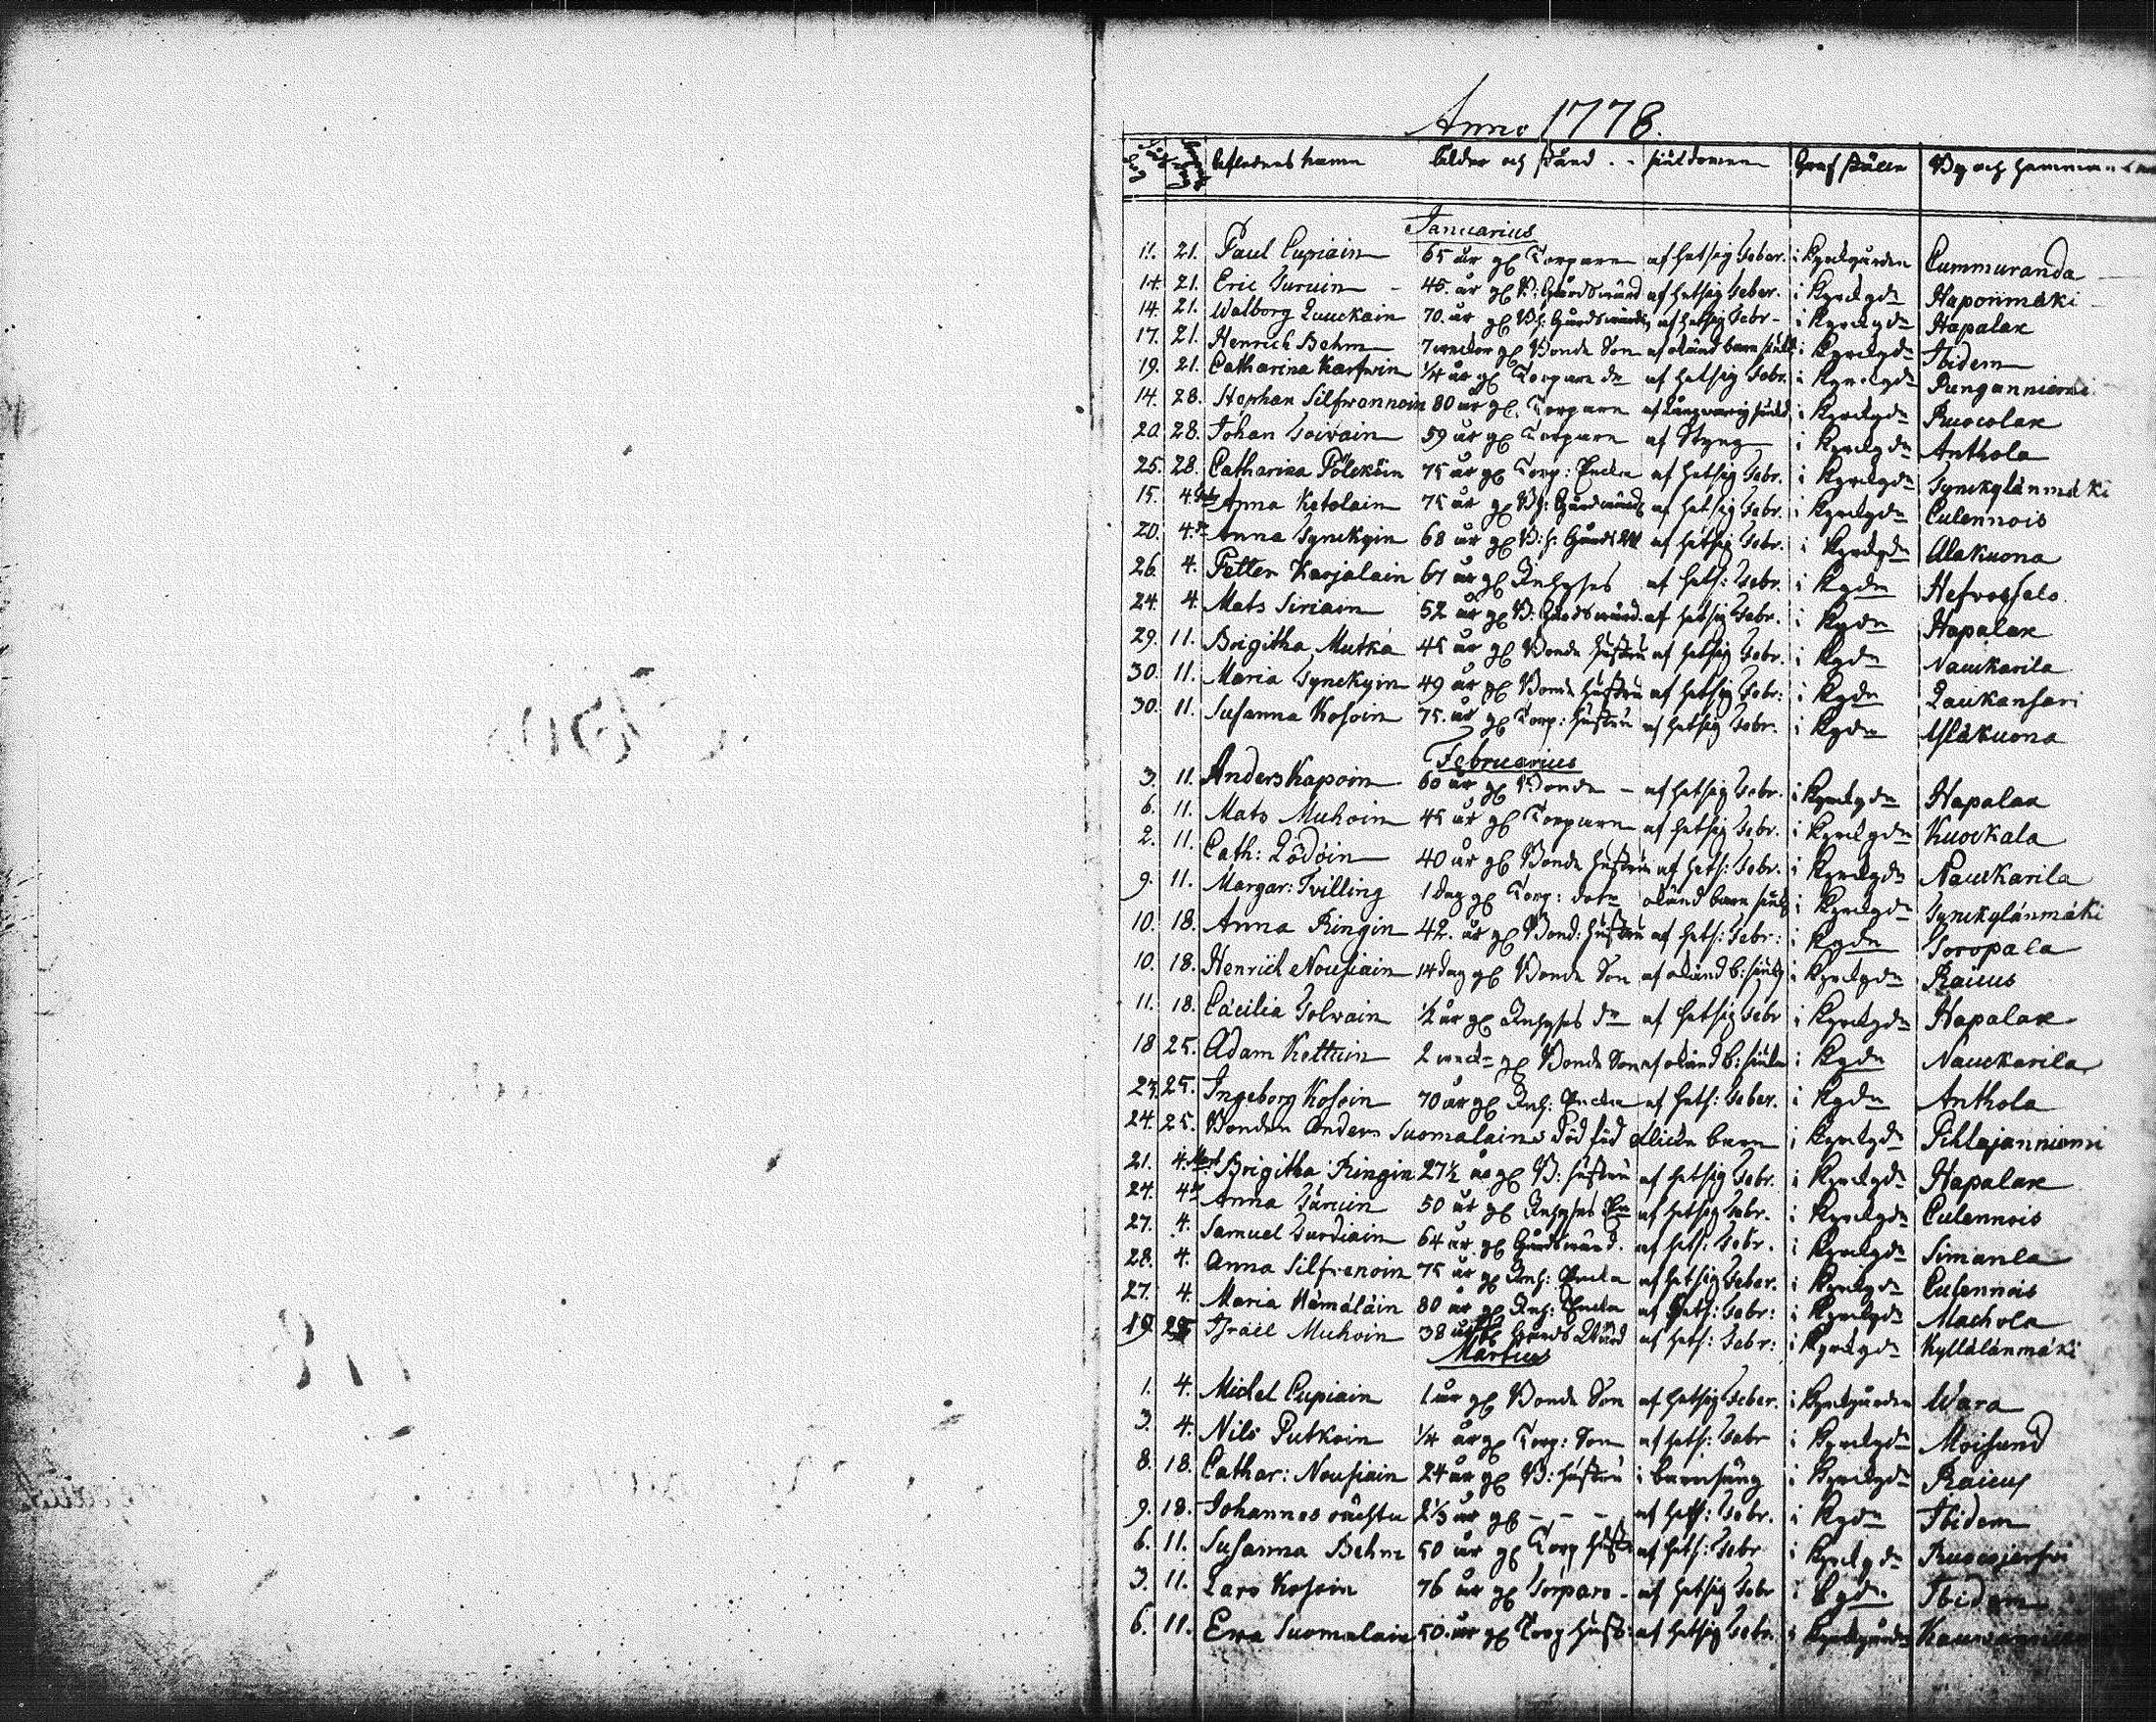 Anno 1778.
aflednes namn ålder och stånd siukdomen Graf ställe By och hemman
Januarius
11. 21. Paul Cupiain 65 år gl Torpare af hetsig feber. i Kyrckgården Cummuranda
14. 21. Eric 45. år gl B: Gårdswärd af hetsig feber. i Kyrckgdn Haponmäki
14. 21. Walborg Luuckain 70. år gl af hetsig febr i Kyrckgdn Hapalax
17. 21. Henrich Behm 7 weckor gl Bonde Son af okänd barn siukd i Kyrckgdn Ibidem
19. 21. Catharina Karfwin 1/4 år gl Torpare dr af hetsig febr. i Kyrckgdn Punganniemi
14. 28. Stephan Silfwonnoin 80 år gl. Torpare af långwarig siukd i Kyrckgdn Ruocolax
20. 28. Johan Toivain 59 år gl Torpare af Styng i Kyrckgdn Anthola
25. 28. Catharina Pöleköin 75 år gl Torp: Encka af hetsig febr. i Kyrckgdn Tynckylänmäki
15. 4. Febr Anna Ketolain 75 år gl af hetsig febr. i Kyrckgdn Culennois
20. 4. Anna Tynckyin 68 år gl af hetsig febr. i Kyrckgdn Alakuona
26. 4. Petter Karjalain 67 år gl Inhyses af hets: febr. i Kgdn Hefvossalo
24. 4. Mats Siriain 52 år gl B. Gårdswärd af hetsig febr. i Kgdn Hapalax
29. 11. Brigitha Mutka 45 år gl Bonde hustru af hetsig febr. i Kgdn Nauckarila
30. 11. Maria Tynckyin 49 år gl Bonde hustru af hetsig febr: i Kgdn Laukansari
30. 11. Susanna Kosoin 75. år gl Torp: hustru af hetsig febr. i Kgdn Yläkuona
Februarius
3. 11. Anders Kapoin 60 år gl Bonde – af hetsig febr. i Kyrckgdn Hapalax
6. 11. Mats Muhoin 45 år gl Torpare af hetsig febr. i Kyrckgdn Kuockala
2. 11. Cath: Lödöin 40 år gl Bonde hustru af hets: febr. i Kyrckgdn Nauckarila
9. 11. Margar: Tvilling 1 dag gl Torp: dotr okänd barn siukd i Kyrckgdn Tynckylänmäki
10. 18. Anna Ringin 42. år gl Bond: hustru af hets: febr: i Kgdn Toropala
10. 18. Henrich Nousiain 14 dag gl Bonde Son af okänd b: siukd i Kyrckgdn Raicus
11. 18. Cäcilia Tolvain 1/2 år gl Inhyses dr af hetsig febr i Kyrckgdn Hapalax
18 25. Adam Kettuin 2 weckr gl Bonde Son af okänd b: siukd i Kgdn Nauckarila
23. 25. Ingeborg Kosoin 70 år gl Inh: Encka af hets: feber. i Kgdn Anthola
24. 25. Bonden Anders Suomalains död föd flicke barn i Kyrckgdn Pihlajanniemi
21. 4. Mart Brigitha Ringin 27 1/2 år gl B: hustru af hetsig febr. i Kyrckgdn Hapalax
24. 4. Anna 50 år gl Inhyses af hetsig febr. i Kyrckgdn Culennois
27. 4. Samuel 64 år gl Gårdswärd. af hets: febr. i Kyrckgdn Simanla
28. 4. Anna Silfvenoin 75 år gl Inh: Encka af hetsig feber. i Kyrckgdn Culennois
27. 4. Maria Hämäläin 80 år gl Inh: Encka af hets: febr: i Kyrckgdn Machola
19 25 Israël Muhoin 38 år gl Gårds Wärd af hets: febr: i Kyrckgdn Kyllälänmäki
Martius
1. 4. Michel Cupiain 1 år gl Bonde Son af hetsig feber. i Kyrckgården Wara
3. 4. Nils Putkoin 1/4 år gl Torp: Son af hets: febr i Kyrckgdn Moisund
8. 18. Cathar: Nousiain 24 år gl B: hustru i barnsäng i Kyrckgdn Raicus
9. 18. Johannes 2 1/3 år gl – – – af hets: febr. i Kgdn Ibidem
6. 11. Susanna Behm 50 år gl Torp hustr af hets: febr i Kyrckgdn Ruocojerfvi
3. 11. Lars Kosoin 76 år gl Torpare – af hetsig febr i Kgdn. Ibidem
6. 11. Ewa Suomalain 50. år gl Torp hust: af hetsig febr. i Kyrckgården